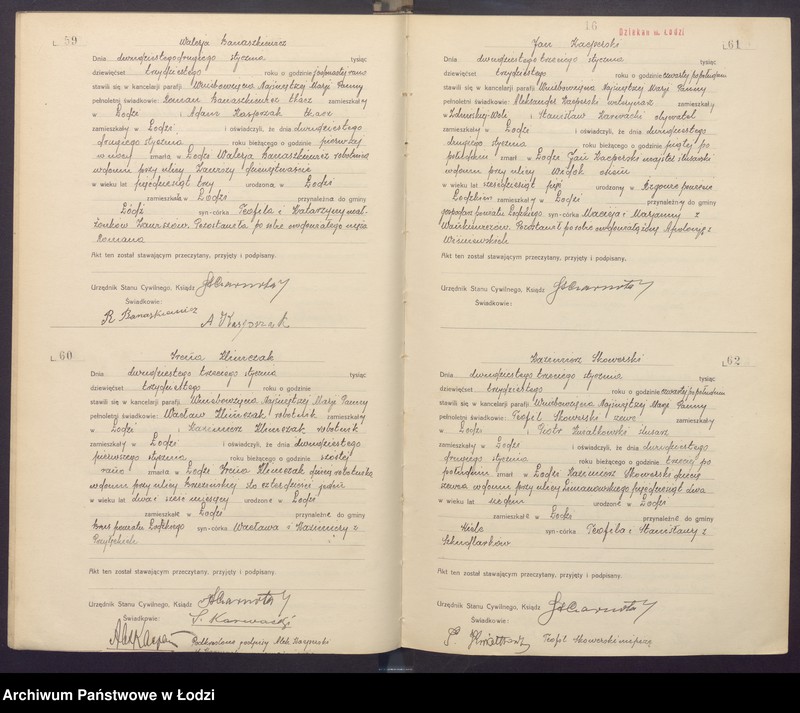 L 59
Walerja Banaszkiewicz
Dnia dwudziestego drugiego stycznia tysiąc
dziewięćset trzydziestego roku o godzinie jedenastej rano
stawili się w kancelarji parafji Wniebowzięcia Najświętszej Marji Panny
pełnoletni świadkowie: Roman Banaszkiewicz tkacz zamieszkały
w Łodzi i Adam Kasprzak tkacz
zamieszkały w Łodzi i oświadczyli, że dnia dwudziestego
drugiego stycznia roku bieżącego o godzinie pierwszej
w nocy zmarła w Łodzi Walerja Banaszkiewicz robotnica
w domu przy ulicy dziewiętnaście
w wieku lat pięćdziesiąt trzy urodzona w Łodzi
zamieszkała w Łodzi przynależna do gminy
Łódź syn-córka Teofila i Katarzyny mał-
żonków Pozostawiła po sobie owdowiałego męża
Romana
Akt ten został stawającym przeczytany, przyjęty i podpisany.
Urzędnik Stanu Cywilnego, Ksiądz
Świadkowie:
R Banaszkiewicz
A Kasprzak
L 60
Irena Klimczak
Dnia dwudziestego trzeciego stycznia tysiąc
dziewięćset trzydziestego roku o godzinie
stawili się w kancelarji parafji Wniebowzięcia Najświętszej Marji Panny
pełnoletni świadkowie: Wacław Klimczak robotnik zamieszkały
w Łodzi i Kazimierz Klimczak robotnik
zamieszkały w Łodzi i oświadczyli, że dnia dwudziestego
pierwszego stycznia roku bieżącego o godzinie szóstej
rano zmarła w Łodzi Irena Klimczak dziecię robotnika
w domu przy ulicy Brzezińskiej sto czterdzieści jeden
w wieku lat dwa i sześć miesięcy urodzone w Łodzi
zamieszkałe w Łodzi przynależne do gminy
powiatu Łódzkiego syn-córka Wacława i Kazimiery z
Akt ten został stawającym przeczytany, przyjęty i podpisany.
Urzędnik Stanu Cywilnego, Ksiądz
Świadkowie:
S. Karwacki
podpisy Alek. Kacperski
16
Dziekan m. Łodzi
L 61
Jan Kacperski
Dnia dwudziestego trzeciego stycznia tysiąc
dziewięćset trzydziestego roku o godzinie czwartej po południu
stawili się w kancelarji parafji Wniebowzięcia Najświętszej Marji Panny
pełnoletni świadkowie: Aleksander Kacperski zamieszkały
w Zduńskiej-Woli i Stanisław Karwacki obywatel
zamieszkały w Łodzi i oświadczyli, że dnia dwudziestego
drugiego stycznia roku bieżącego o godzinie piątej po
południu zmarł w Łodzi Jan Kacperski majster ślusarski
w domu przy ulicy Widok osiem
w wieku lat sześćdziesiąt pięć urodzony w Zgierz powiecie
Łódzkim zamieszkały w Łodzi przynależny do gminy
powiatu Łódzkiego syn-córka Macieja i Marjanny z
Pozostawił po sobie owdowiałą żonę Apolonję z
Wiśniewskich
Akt ten został stawającym przeczytany, przyjęty i podpisany.
Urzędnik Stanu Cywilnego, Ksiądz
Świadkowie:
L 62
Kazimierz Skowerski
Dnia dwudziestego trzeciego stycznia tysiąc
dziewięćset trzydziestego roku o godzinie czwartej po południu
stawili się w kancelarji parafji Wniebowzięcia Najświętszej Marji Panny
pełnoletni świadkowie: Teofil Skowerski szewc zamieszkały
w Łodzi i Piotr Kwiatkowski ślusarz
zamieszkały w Łodzi i oświadczyli, że dnia dwudziestego
drugiego stycznia roku bieżącego o godzinie trzeciej po
południu zmarł w Łodzi Kazimierz Skowerski dziecię
szewca w domu przy ulicy Limanowskiego pięćdziesiąt dwa
w wieku lat siedem urodzone w Łodzi
zamieszkałe w Łodzi przynależne do gminy
syn-córka Teofila i Stanisławy z
Akt ten został stawającym przeczytany, przyjęty i podpisany.
Urzędnik Stanu Cywilnego, Ksiądz
Świadkowie:
Teofil Skowerski
Archiwum Państwowe w Łodzi